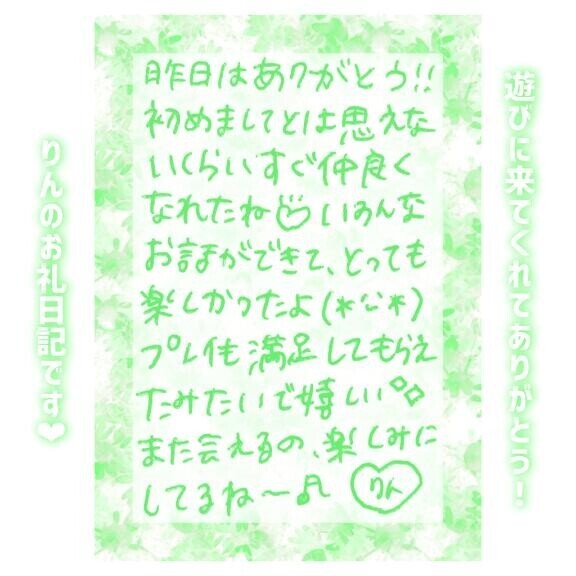 遊びに来てくれてありがとう！
昨日はありがとう!!
初めましてとは思えな
いくらいすぐ仲良く
なれたね♡いろんな
お話ができて、とっても
楽しかったよ(*^ω^*)
プレイも満足してもらえ
たみたいで嬉しい✧
また会えるの、楽しみに
してるね〜♬ りん
りんのお礼日記です♥